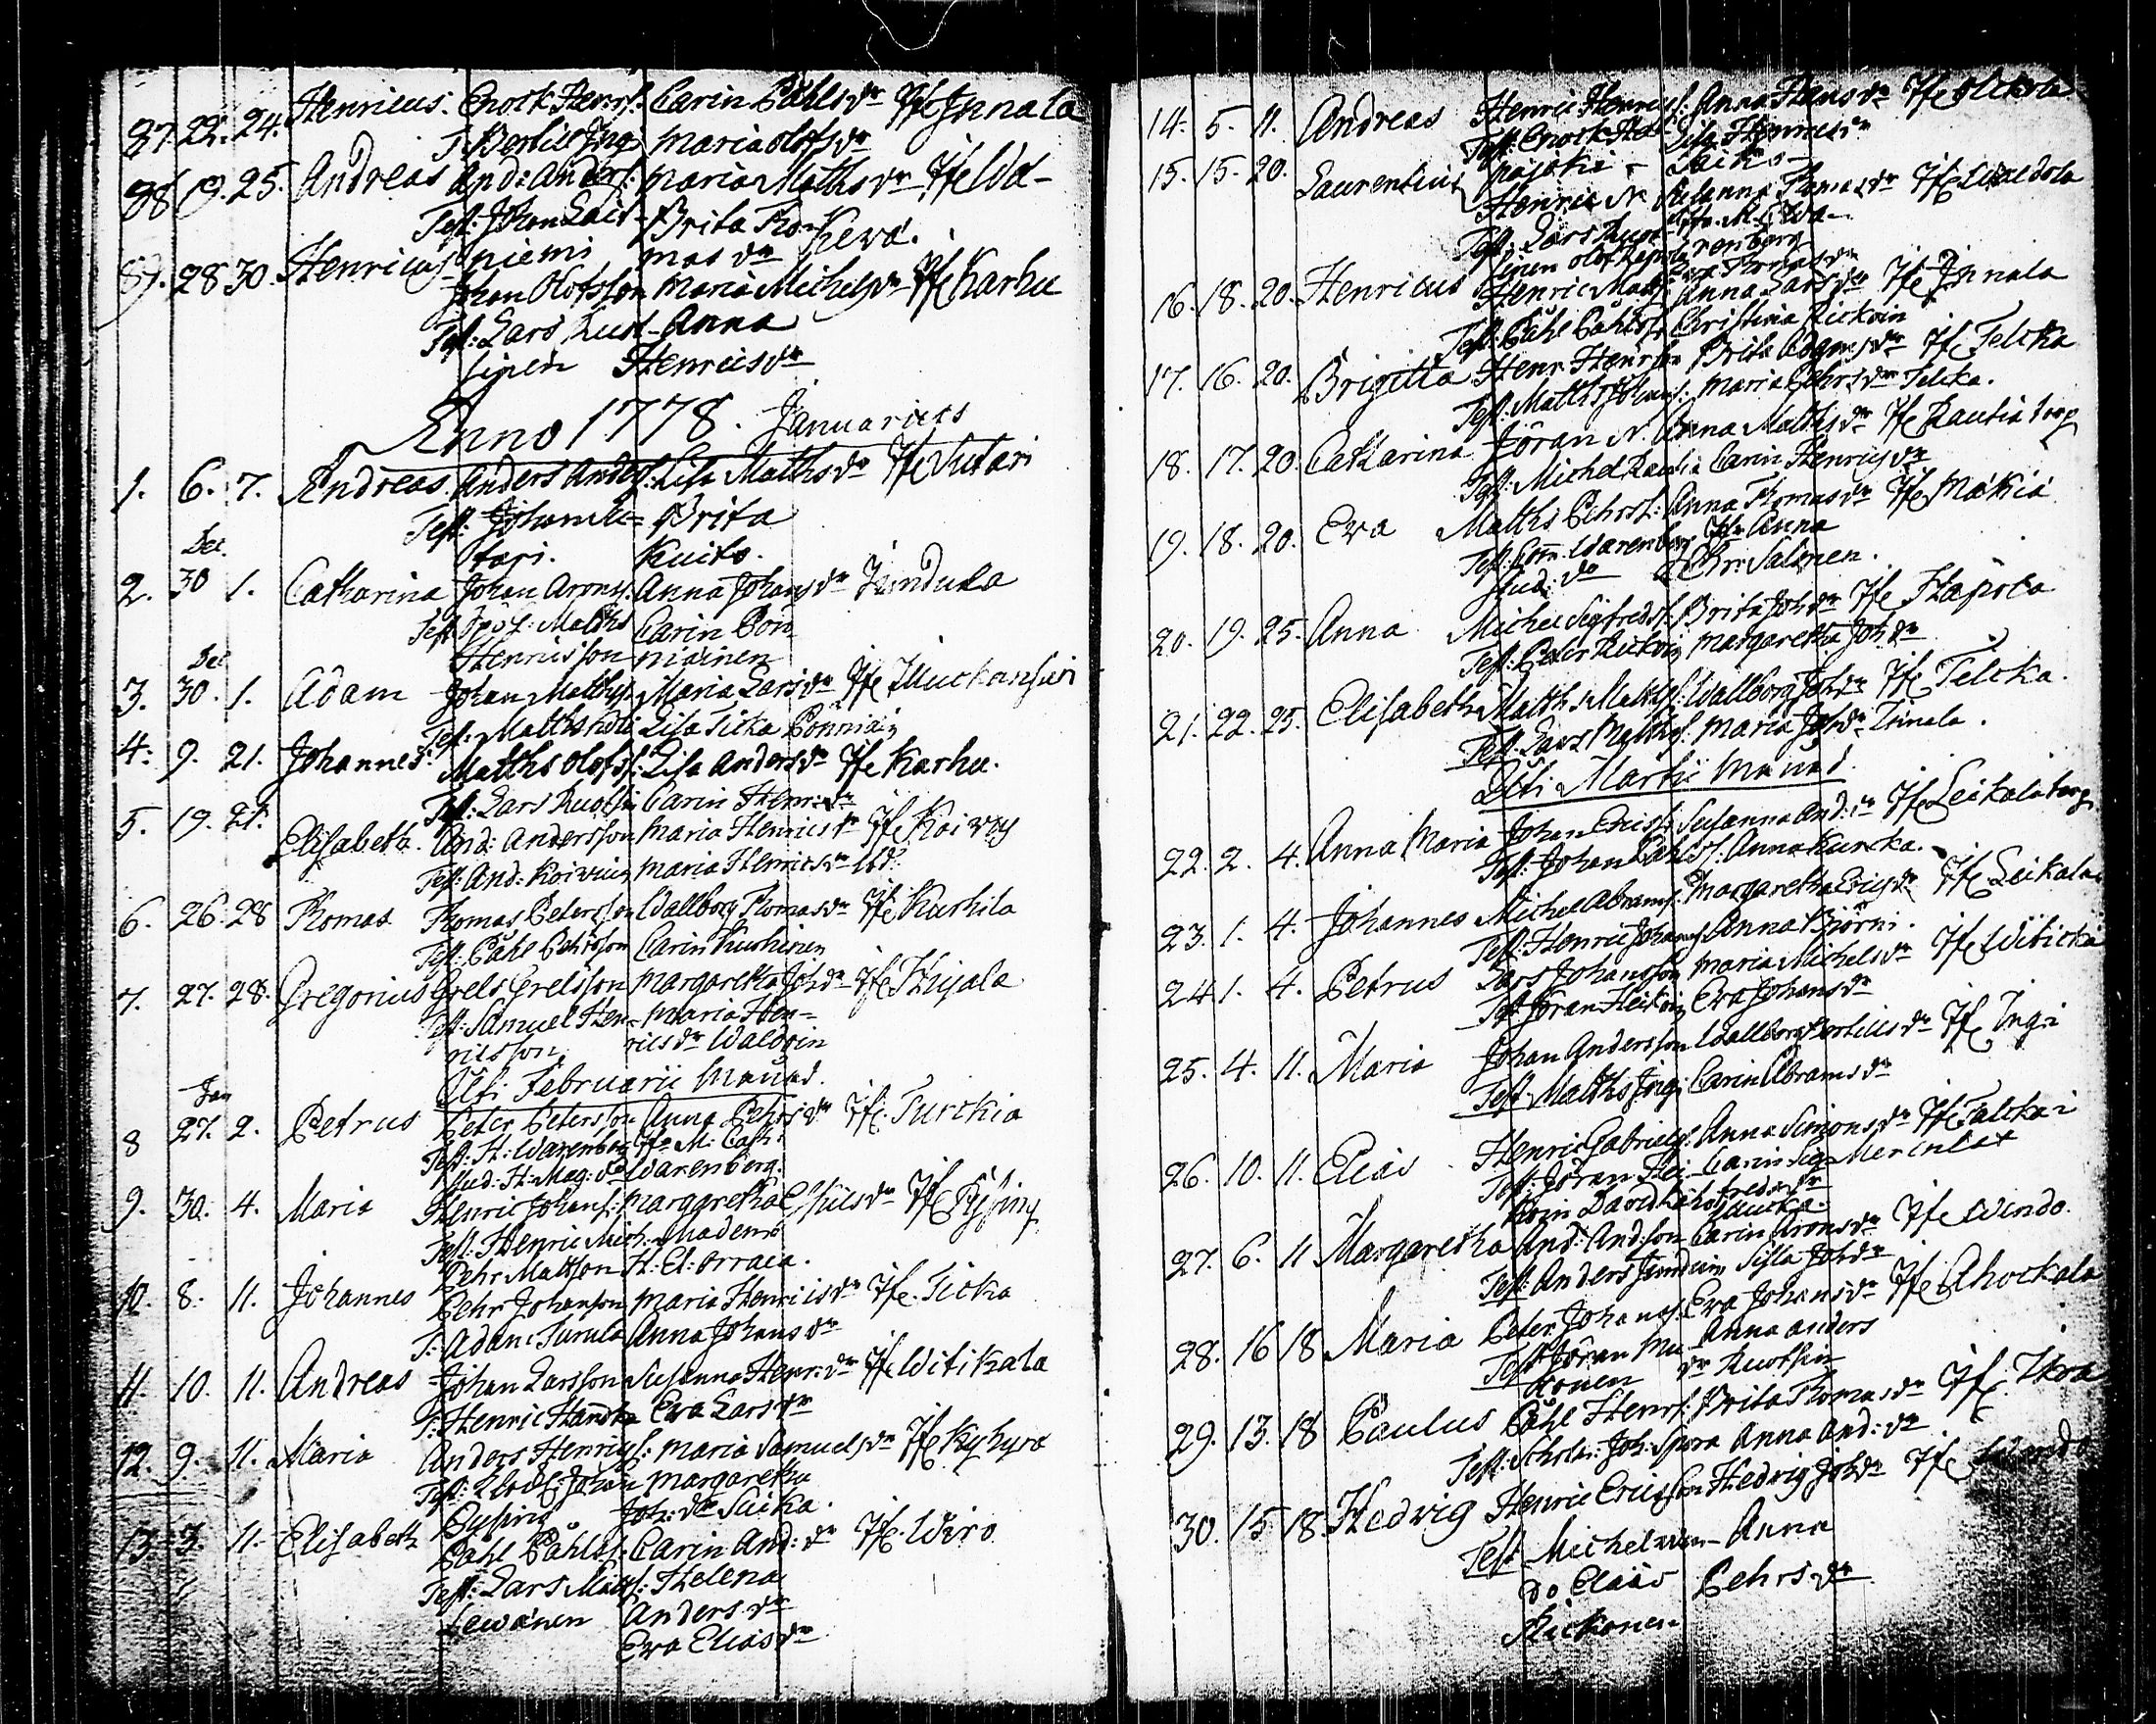 87. 22. 24. Henricus. Enock Henrs: Carin Påhlsdr Jfr Innala
T: Bertill Ing Maria Olofsdr
88 19. 25. Andreas And: Anders: Maria Mathsdr Jfr Wal-
Test: Johan Lait- Brita Tho- keva.
niemi masdr
89. 28 30. Henricus Johan Olofsson Maria Michelsdr Jfr Karhu
Test: Lars Ruot- Anna
sinen Henricsdr
Anno 1778. Januarius
1. 6. 7. Andreas Anders Anders: Lisa Mathsdr Jfr Sutari
Test: Johan Su- Brita
tari. Kuito.
Dec.
2. 30 1. Catharina Johan Arons: Anna Johansdr Junduka
Test: Matths Carin Pön
Henricsson niäinen
Dec
3. 30. 1. Adam Johan Mathss: Maria Larsdr Jfr
Test: Matths Lisa Ticka Pönniäin
4. 9. 21. Johannes: Matths Olofss: Lisa Andersdr Jfr Karhu.
Test: Lars Ruotsin Carin Henr:dr
5. 19. 21. Elisabeth. And: Andersson Maria Henricsdr Jfr Koivoj
Test: And: Koivuin Maria Henricsdr ibd:
6. 26. 28 Thomas Thomas Petersson Wallborg Thomasdr Jfr Kurhila
Test: Påhl Pehrsson Carin Kurhinen
7. 27. 28. Gregorius Grels Grelsson Margaretha Johdr Jfr Hujala
Test: Samuel Hen- Maria Hen-
ricsson ricsdr Waldoin
Uti Februarii Månad.
Jan
8 27. 2. Petrus Peter Petersson Anna Pehrsdr Jfr. Turckia
Test: H: Warenberg Jfr M: Cath:
Stud: H: Mag: do Warenberg.
9. 30. 4. Maria Henric Johans: Margaretha Jfr
Test: Henric Mich: Madem:
Pehr Mattson H: El: Orraea.
10. 8. 11. Johannes Pehr Johanson Maria Henricsdr Jfr. Ticka
T: Adam Turula Anna Johansdr
11. 10. 11. Andreas Johan Larsson Susanna Henr:dr Jfr Witikala
T: Henric Handka Eva Larsdr
12. 9. 11. Maria Anders Henrics: Maria Samuelsdr Jfr Kyhyrä
Test: Johan Margaretha
Pyssing Joh:dr Suika.
13. 3. 11. Elisabeth Påhl Påhlss: Carin And:dr Jfr. Wiro
Test: Lars Matts: Helena
Lewänen Andersdr
Eva Eliasdr
14. 5. 11. Andreas Henric Henrics: Anna Hansdr Jfr Uckola
Test: Enock Lisa Henricsdr
15. 15. 20. Laurentius Henric N. Susanna Thomasdr Jfr
Test: Lars Ruot-
sinen Olof renberg
16. 18. 20. Henricus Henric Matts: Anna Larsdr Jfr Innala
Test: Påhl Påhlss: Christina Rickoin
17. 16. 20. Brigitta Henr. Henrson Brita Adamsdr Jfr Telcka
Test: Matths Johans: Maria Pehrsdr Telcka.
18. 17. 20 Catharina Jöran N. Anna Mathsdr Jfr Rautia torp
Test: Michel Rautia Carin Henricsdr
19. 18. 20. Eva Matths Pehrs: Anna Thomasdr Jfr Mäkiä
Test: Com: Warenberg Jfr Anna
Stud: do Chr: Salonen.
20. 19. 25. Anna Michel Sigfredss: Brita Johdr Jfr Hapola
Test: Peter Rickoin Margaretha Johdr
21. 22. 25. Elisabeth Matths Mathss: Wallborg Johdr Jfr Telcka.
Test: Lars Mathss: Maria Johdr Innala.
Uti Martii Månad.
22. 2. 4. Anna Maria Johan Erics: Susanna And:dr Jfr Leikala torp
Test: Johan Påhlss: Anna Kurcka.
23. 1. 4. Johannes Michel Abrams: Margaretha Ericsdr Jfr Leikala
Test: Henric Johans: Anna Björni.
24 1. 4. Petrus Lars Johansson Maria Michelsdr Jfr Witicka
Test: Jöran Heikoin Eva Johansdr
25. 4. 11. Maria Johan Andersson Wallborg Bertillsdr Jfr Ingi
Test: Matths Ingi Carin Abramsdr
26. 10. 11. Elias Henric Gabriels: Anna Simonsdr Jfr Talckai
Test: Jöran Hei- Carin Sig- Merinlax
koin David fredsdr
27. 6. 11 Margaretha And: Andson Carin Aronsdr Jfr Windo.
Test: Anders Junduin Sissa Johdr
28. 16 18 Maria Peter Johans: Eva Johansdr Jfr Ahockala
Test: Jöran Mu- Anna Anders
konen dr Ruotsin
29. 13. 18 Paulus Påhl Henrs: Brita Thomasdr Jfr. Ikra
Test: Joh: Spora Anna And:dr
30. 15 18 Hedvig Henric Ericsson Hedvig Johdr Jfr Windo
Test: Michel Win- Anna
do Elias Pehrsdr
Kickonen